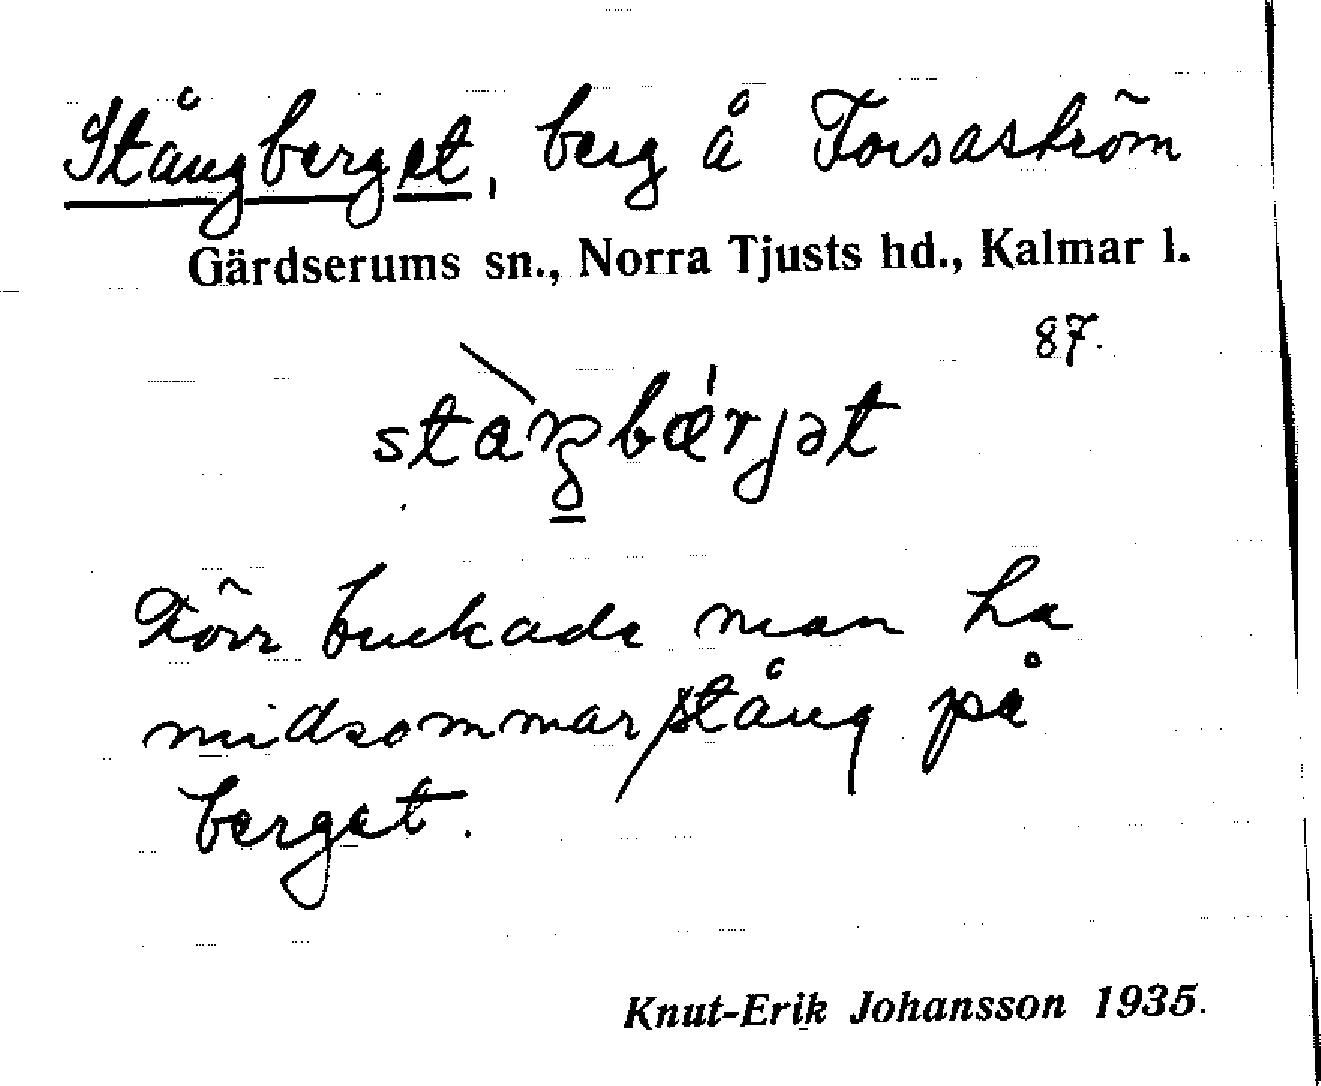 Stångberget, berg å Forsaström
Gärdserums sn., Norra Tjusts hd., Kalmar l.
87.
Förr brukade man ha
midsommarstång på
berget.
Knut-Erik Johansson 1935.